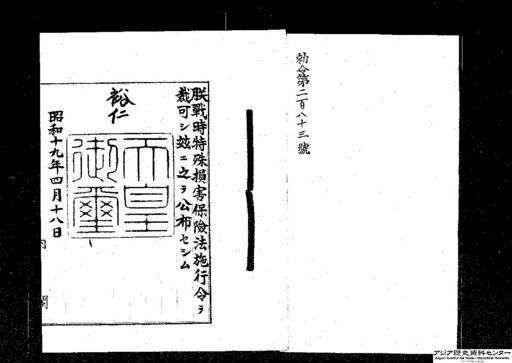 勅令第二百八十三號
朕戰時特殊損害保險法施行令ヲ
裁可シ玆ニ之ヲ公布セシム
裕仁
天皇
御璽
昭和十九年四月十八日
内
閣
アジア歴史資料センター
Japan Center for Asian Historical Records